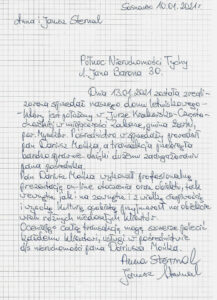 Sosnowiec 10.01.2021r
Anna i Janusz Stermal
Północ Nieruchomości Tychy
ul. Jana Barona 30.
Dnia 13.01.2021 została zreali-
zowana sprzedaż naszego domu letniskowego
który jest położony w Jurze Krakowsko - Często-
chowskiej w miejscowości Zabone, gmina Żarki,
pow. Myszków. Pośrednictwo w sprzedaży prowadził
pan Dariusz Mottka, a transakcja przebiegła
bardzo sprawnie dzięki dużemu zaangażowaniu
pana pośrednika.
Pan Dariusz Mottka wykonał profesjonalną
prezentację on-line otoczenia oraz obiektu, tak
wewnątrz jak i na zewnątrz i z wielką cierpliwością
i wysoką kulturą opisaną przyjmował na obiekcie
wielu różnych wiadomych klientów.
Oceniając całą transakcję mogę szczerze polecić
każdemu klientowi, usługi w pośrednictwie
d/s nieruchomości pana Dariusza Mottka.
Anna Stermal
Janusz Stermal